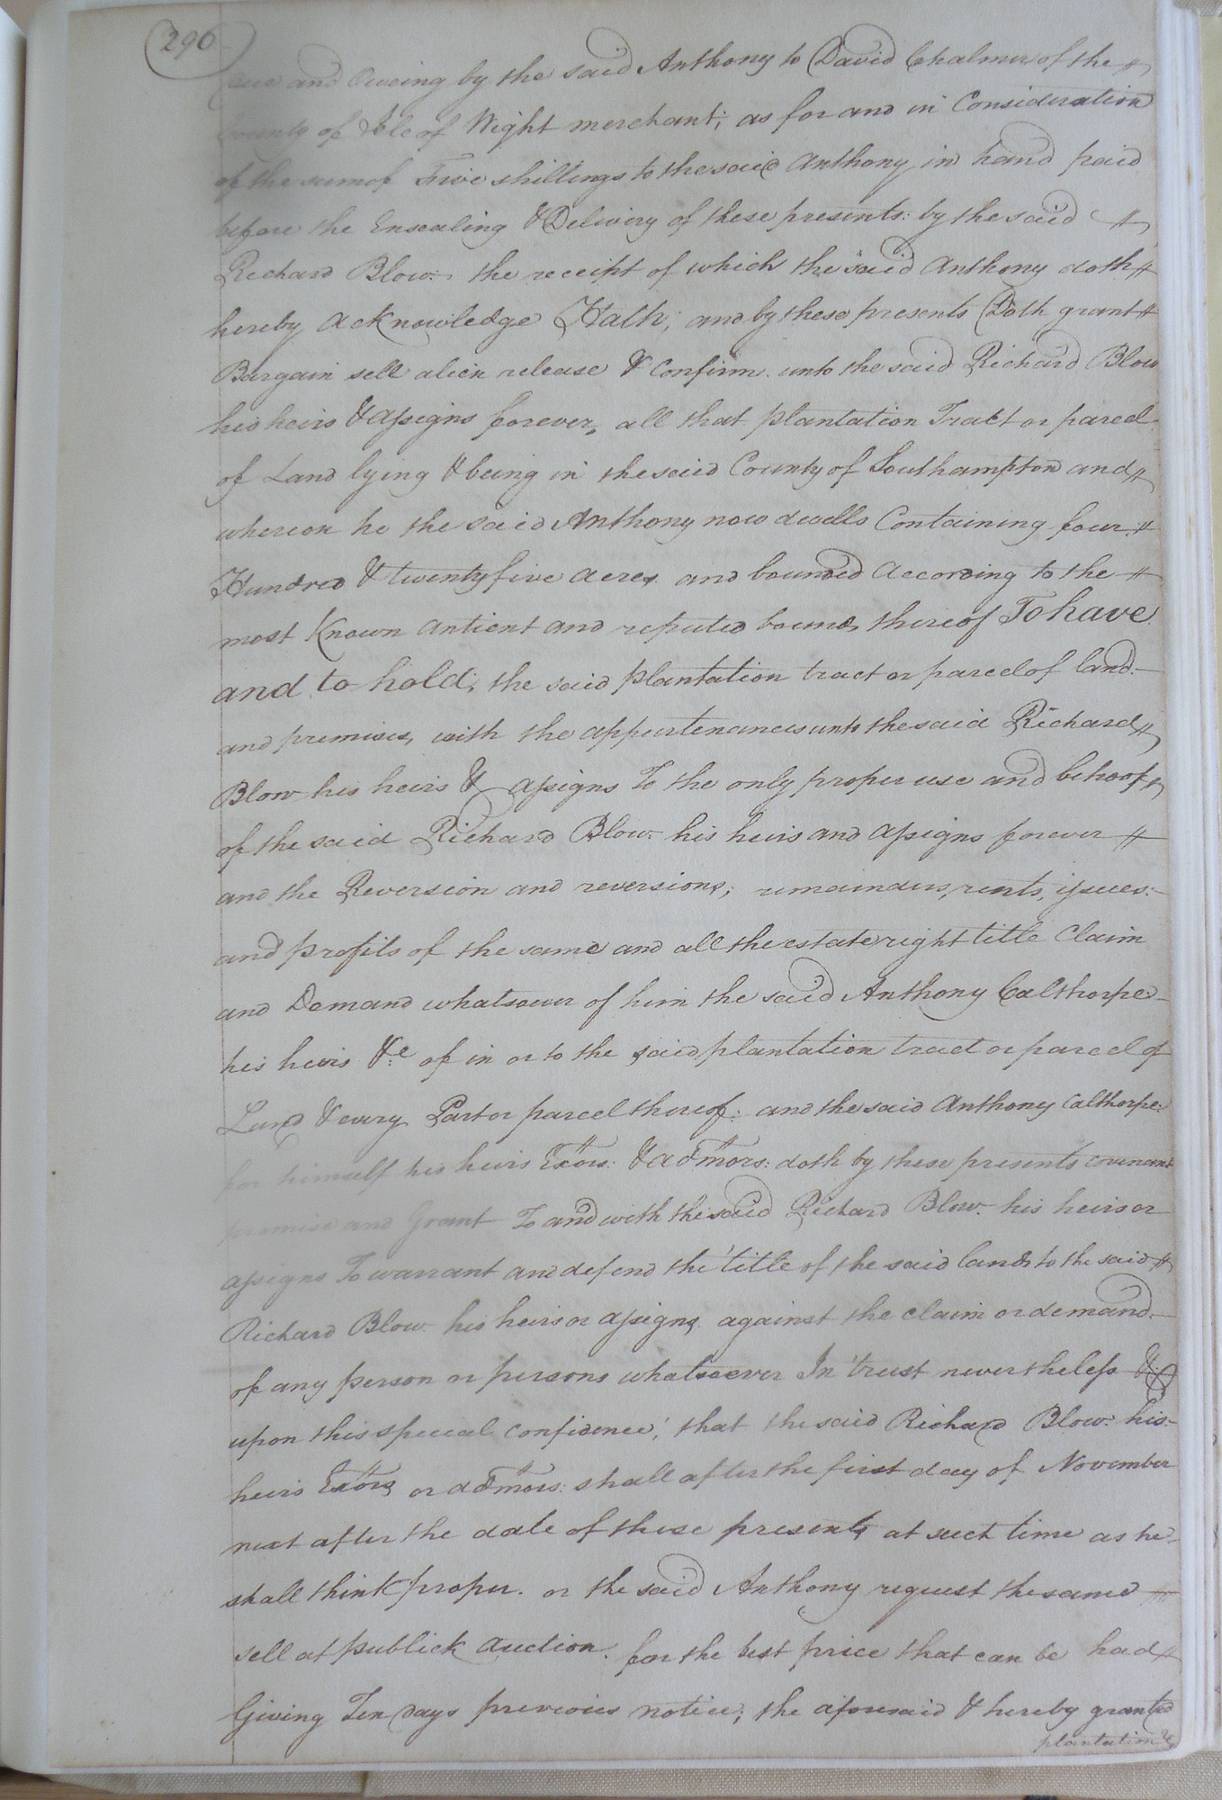 296
due and Oweing by the said Anthony to David Chalmers of the
County of Isle of Wight merchant; as for and in Consideration
of the sum of Five shillings to the said Anthony in hand paid
before the Ensealing & Delivery of these presents: by the said
Richard Blow. the receipt of which the said Anthony doth
hereby acknowledge Hath; and by these presents Doth grant
Bargain sell alien release & Confirm. unto the said Richard Blow
his heirs & assigns forever, all that plantation Tract or parcel
of Land lying & being in the said County of Southampton and
whereon he the said Anthony now dwells Containing four
Hundred & twenty five acres and bounded According to the
most Known antient and reputed bounds thereof To have
and to hold; the said plantation tract or parcel of land
and premises, with the appurtenances unto the said Richard
Blow his heirs & assigns To the only proper use and behoof
of the said Richard Blow his heirs and assigns forever
and the Reversion and reversions; remainders, rents, issues
and profits of the same and all the estate right title Claim
and Demand whatsoever of him the said Anthony Calthorpe
his heirs &c of in or to the said plantation tract or parcel of
Land & every Part or parcel thereof: and the said Anthony Calthorpe
for himself his heirs Exors: & admors: doth by these presents covenant
promise and Grant To and with the said Richard Blow. his heirs or
assigns To warrant and defend the title of the said lands to the said
Richard Blow his heirs or assigns against the claim or demand
of any person or persons whatsoever In trust nevertheless &
upon this special confidence; that the said Richard Blow his
heirs Exors or admors: shall after the first day of November
next after the date of these presents at such time as he
shall think proper. or the said Anthony request the same
sell at publick auction. for the best price that can be had
Giving Ten days previous notice; the aforesaid & hereby granted
plantation &c